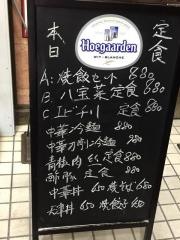 本日
定食
Hoegaarden
WIT-BLANCHE
A:焼飯セット 880
B.八宝菜定食 880
C.エビチリ 定食 880
中華冷麺 880
中華刀削冷麺 880
青椒肉絲定食 880
酢豚定食 880
中華丼 650 焼そば 680
天津丼 650 焼餃子 680